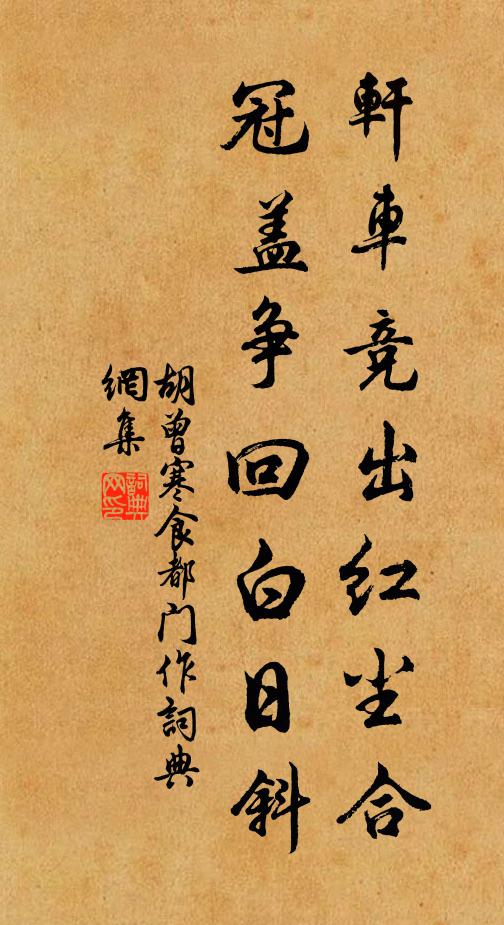 軒車竞出红尘合
冠盖争回白日斜
胡曾寒食都门作詞典
網集
詞典
网印